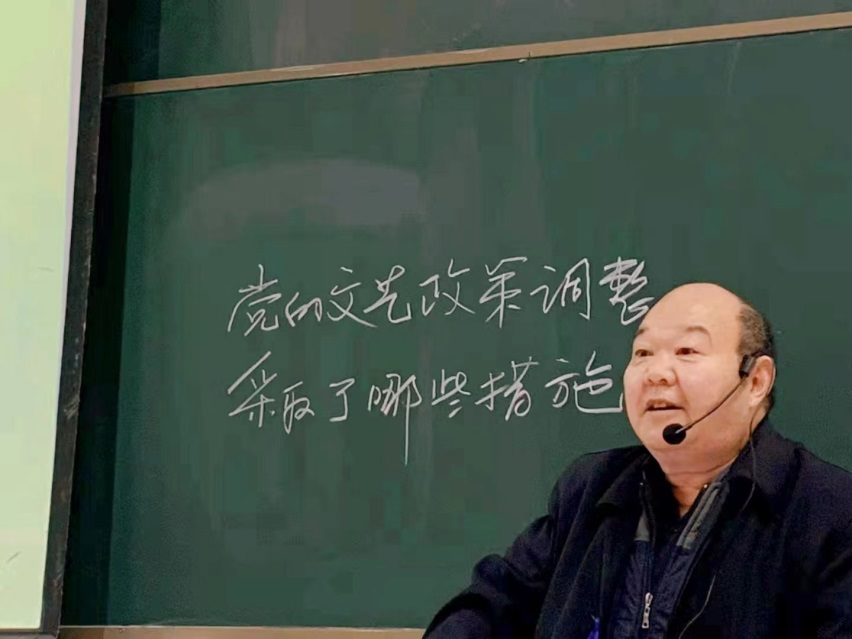 党的文艺政策调整
采取了哪些措施